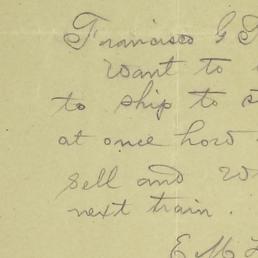 Francisco G
Want to
to ship to
at once how
sell and
next train.
E M